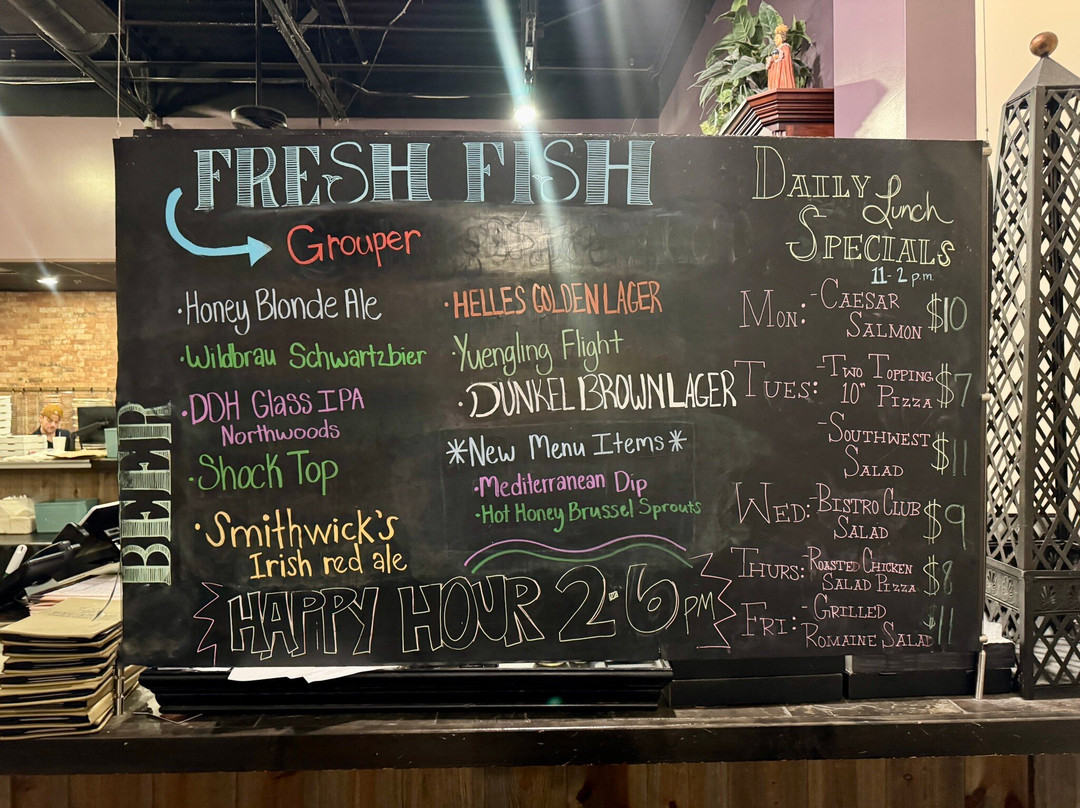 FRESH FISH
Grouper
BEER
·Honey Blonde Ale
·Wildbrau Schwartzbier
·DDH Glass IPA
Northwoods
·Shock Top
·Smithwick's
Irish red ale
·HELLES GOLDEN LAGER
·Yuengling Flight
·DUNKEL BROWN LAGER
*New Menu Items*
·Mediterranean Dip
·Hot Honey Brussel Sprouts
HAPPY HOUR 2-6 PM
DAILY Lunch
SPECIALS
11-2 p.m.
MON: -CAESAR
SALMON $10
TUES: -TWO TOPPING
10" PIZZA $7
-SOUTHWEST
SALAD $11
WED: -BISTRO CLUB
SALAD $9
THURS: ROASTED CHICKEN
SALAD PIZZA $8
FRI: -GRILLED
ROMAINE SALAD $11